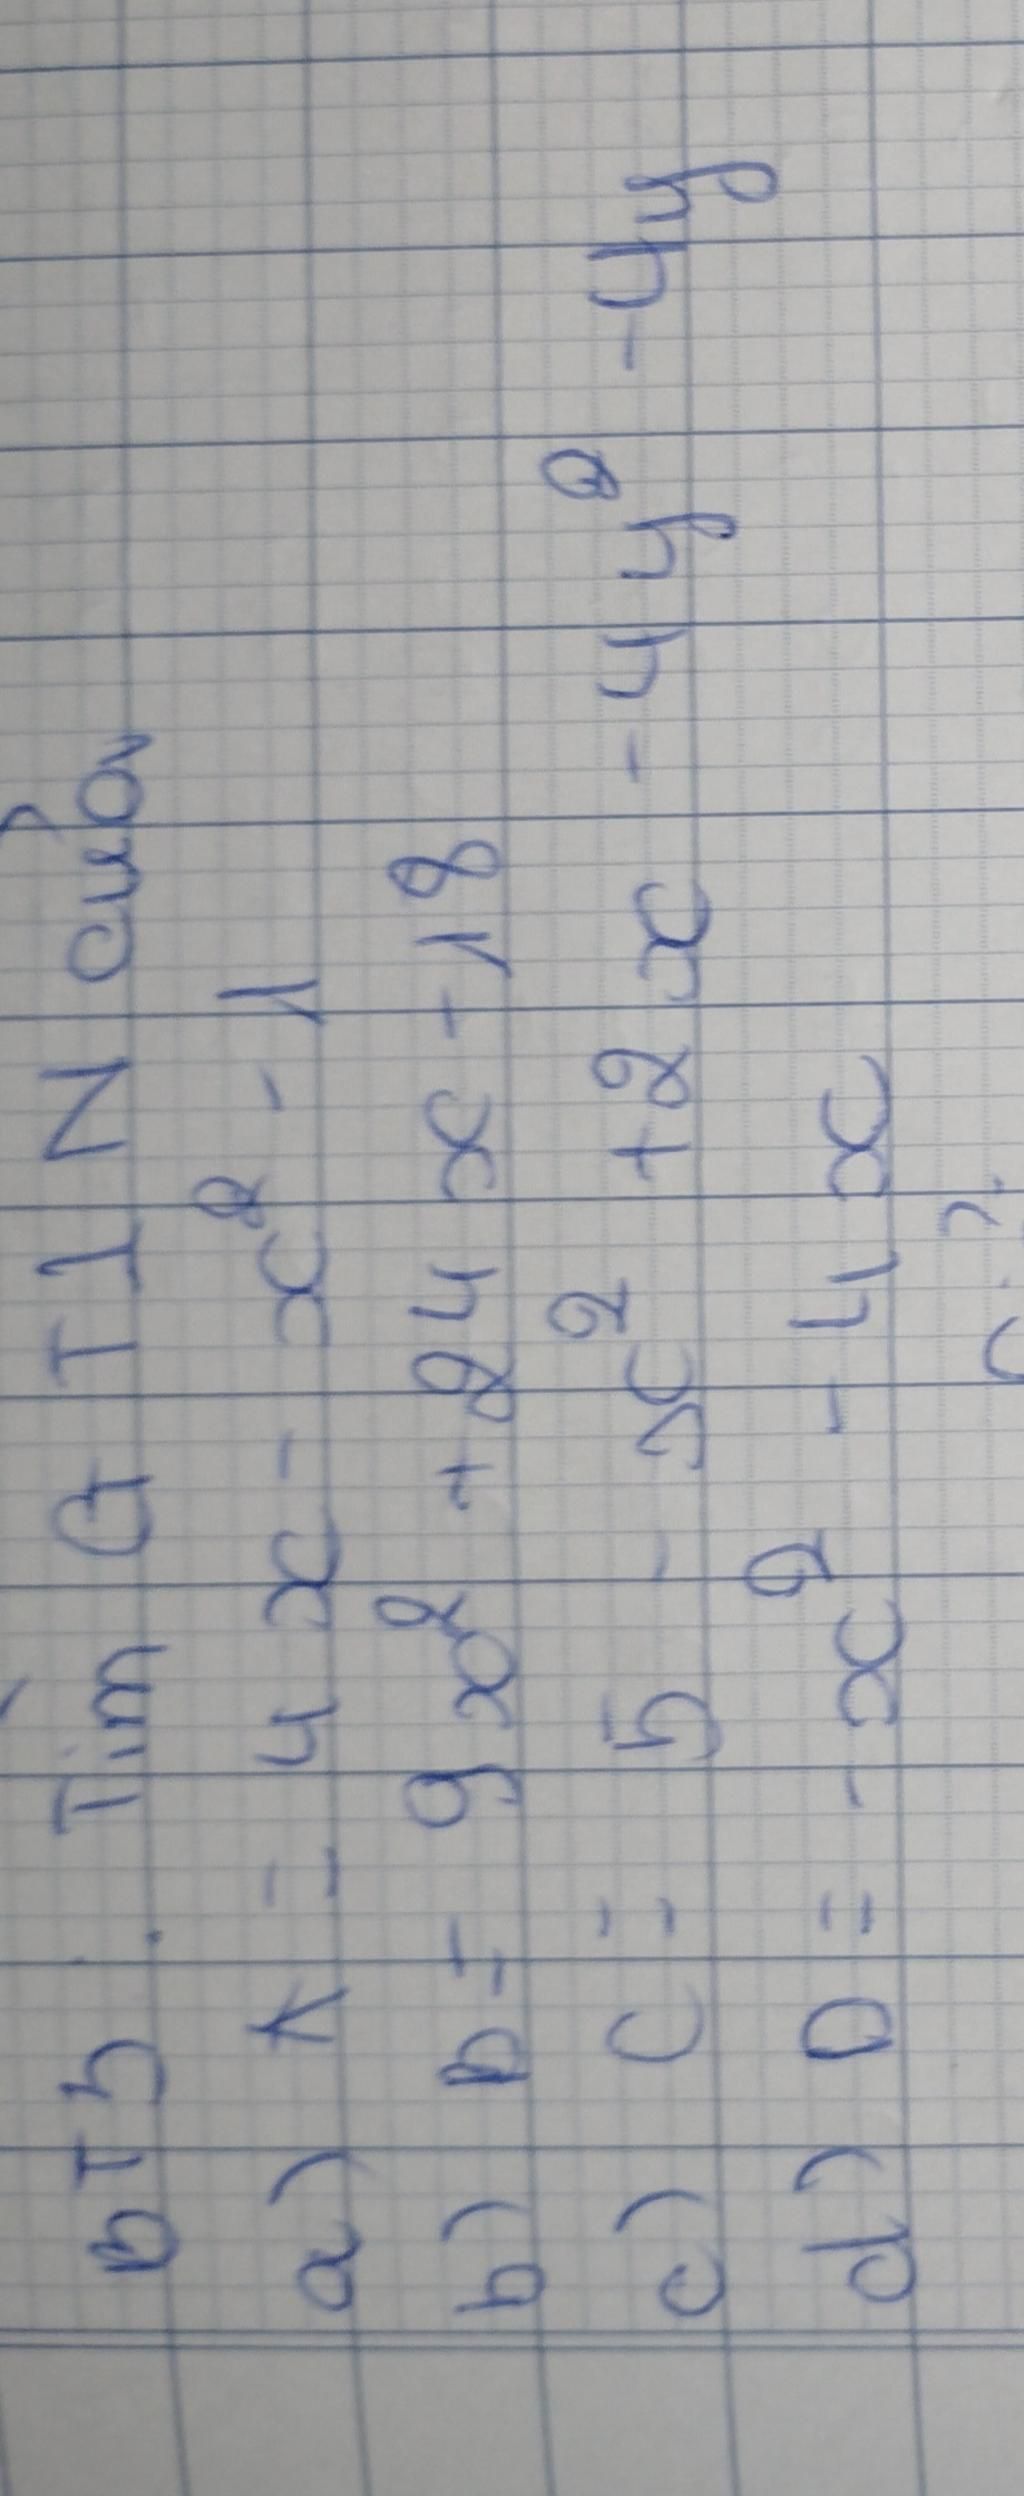 BT5: Tìm GTLN của
a) A = 4x - x² - 1
b) B = 9x² + 24x + 18
c) C = 5 - x² + 2x - 4y² - 4y
d) D = - x² - 4x